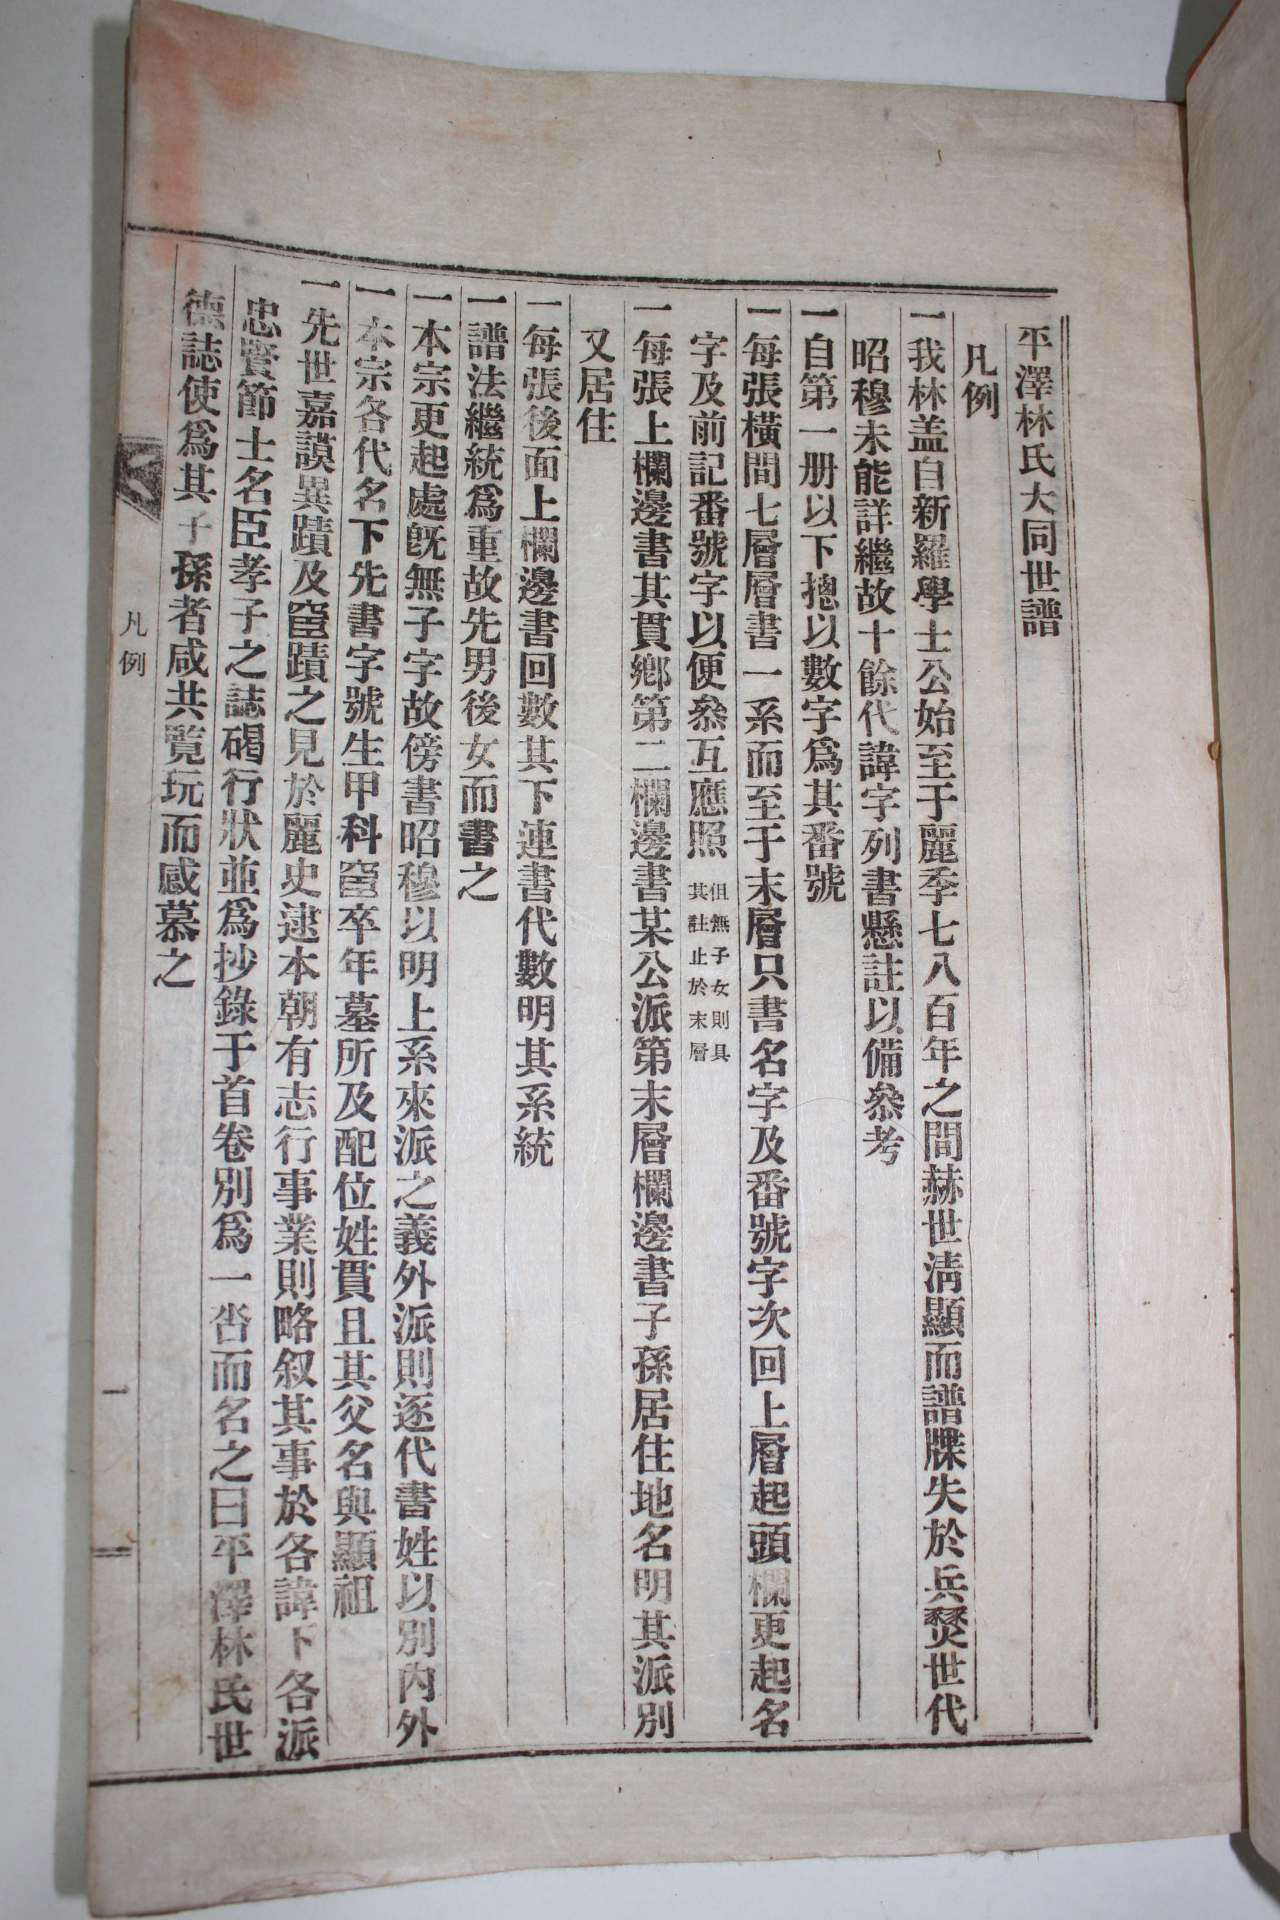 平澤林氏大同世譜
凡例
一我林盖自新羅學士公始至于麗季七八百年之間赫世淸顯而譜牒失於兵燹世代
昭穆未能詳繼故十餘代諱字列書懸註以備叅考
一自第一册以下摠以數字爲其番號
一每張橫間七層層書一系而至于末層只書名字及番號字次回上層起頭欄更起名
字及前記番號字以便叅互應照 但無子女則具
其註止於末層
一每張上欄邊書其貫鄕第二欄邊書某公派第末層欄邊書子孫居住地名明其派別
又居住
一每張後面上欄邊書回數其下連書代數明其系統
一譜法繼統爲重故先男後女而書之
一本宗更起處旣無子字故傍書昭穆以明上系來派之義外派則逐代書姓以別內外
一本宗各代名下先書字號生甲科宦卒年墓所及配位姓貫且其父名與顯祖
一先世嘉謨異蹟及宦蹟之見於麗史逮本朝有志行事業則略叙其事於各諱下各派
忠賢節士名臣孝子之誌碣行狀並爲抄錄于首卷別爲一呇而名之曰平澤林氏世
德誌使爲其子孫者咸共覽玩而感慕之
凡例
一